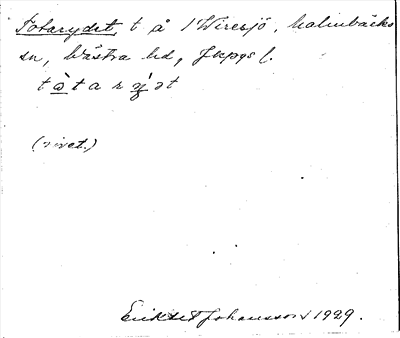 Totarydet, t å 1 Wiresjö, Malmbäcks
sn, Västra hd, Jkpgs l.
t ò t a r y d ə t
(rivet.)
Johansson 1929.